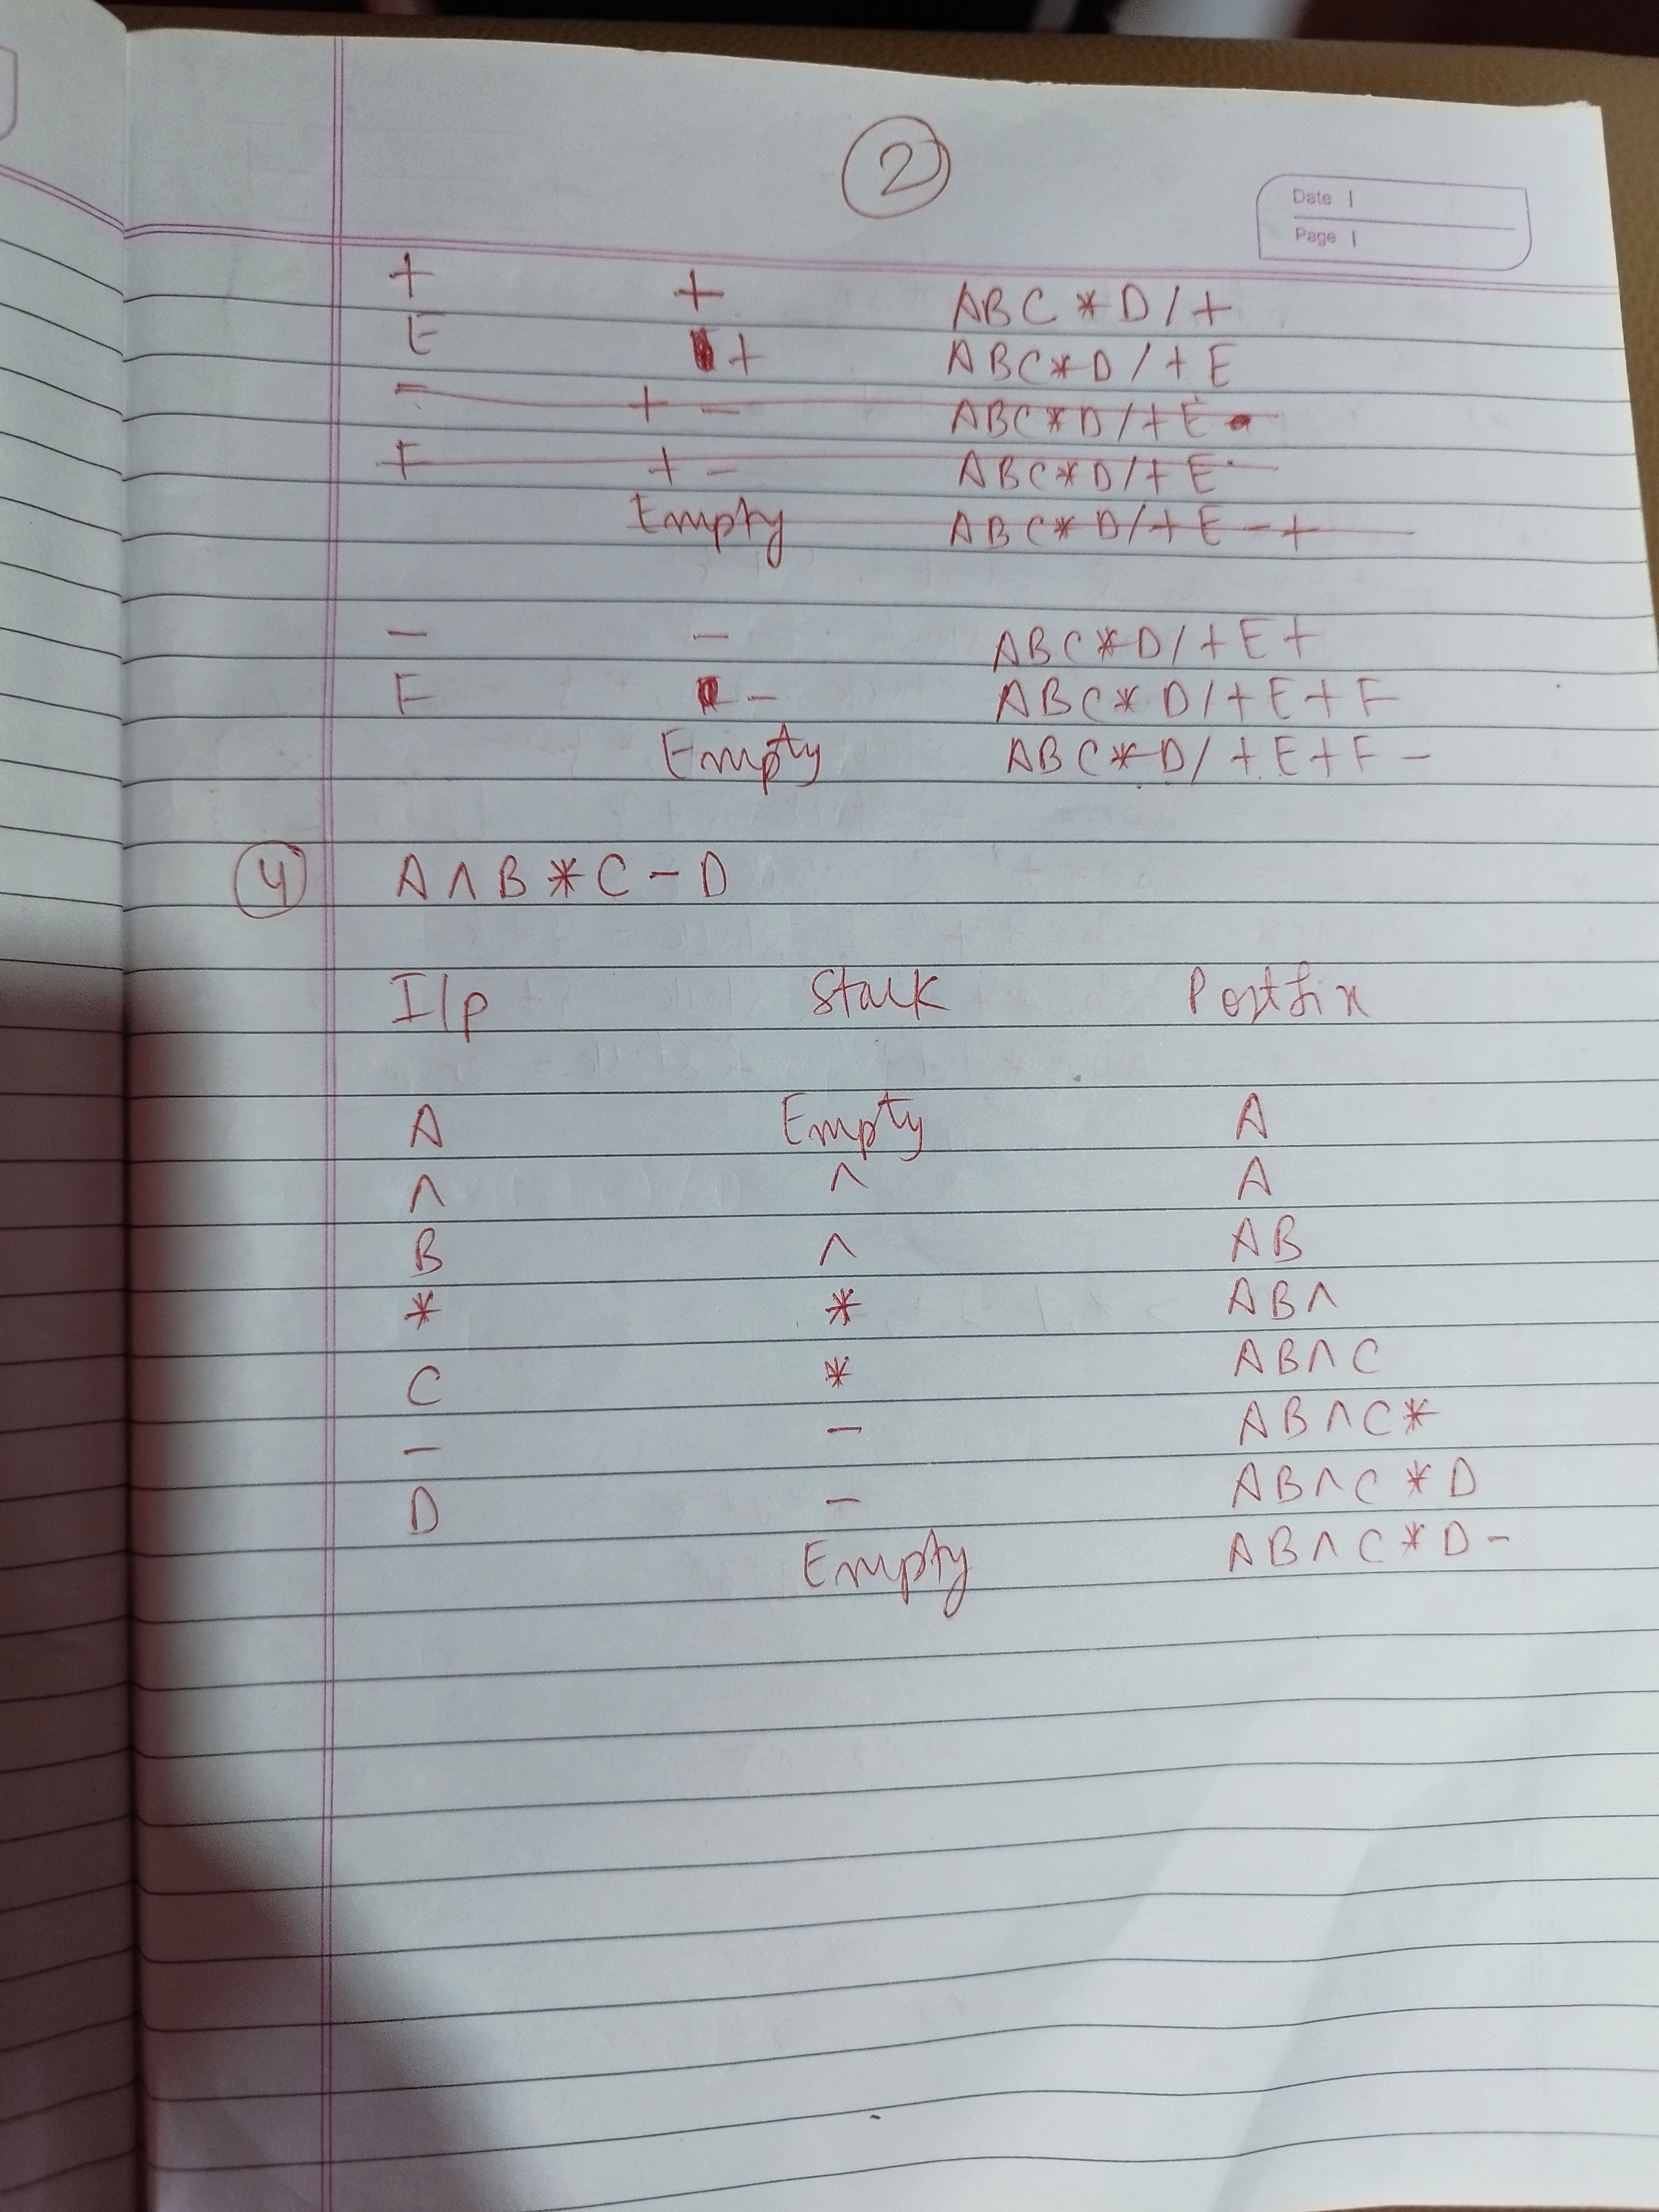 2
Date
Page
+ + ABC*D/+
E + ABC*D/+E
- + - ABC*D/+E
F + - ABC*D/+E
Empty ABC*D/+E-+
- - ABC*D/+E+
F - ABC*D/+E+F
Empty ABC*D/+E+F-
4 A∧B*C-D
I/p Stack Postfix
A Empty A
∧ ∧ A
B ∧ AB
* * AB∧
C * AB∧C
- - AB∧C*
D - AB∧C*D
Empty AB∧C*D-